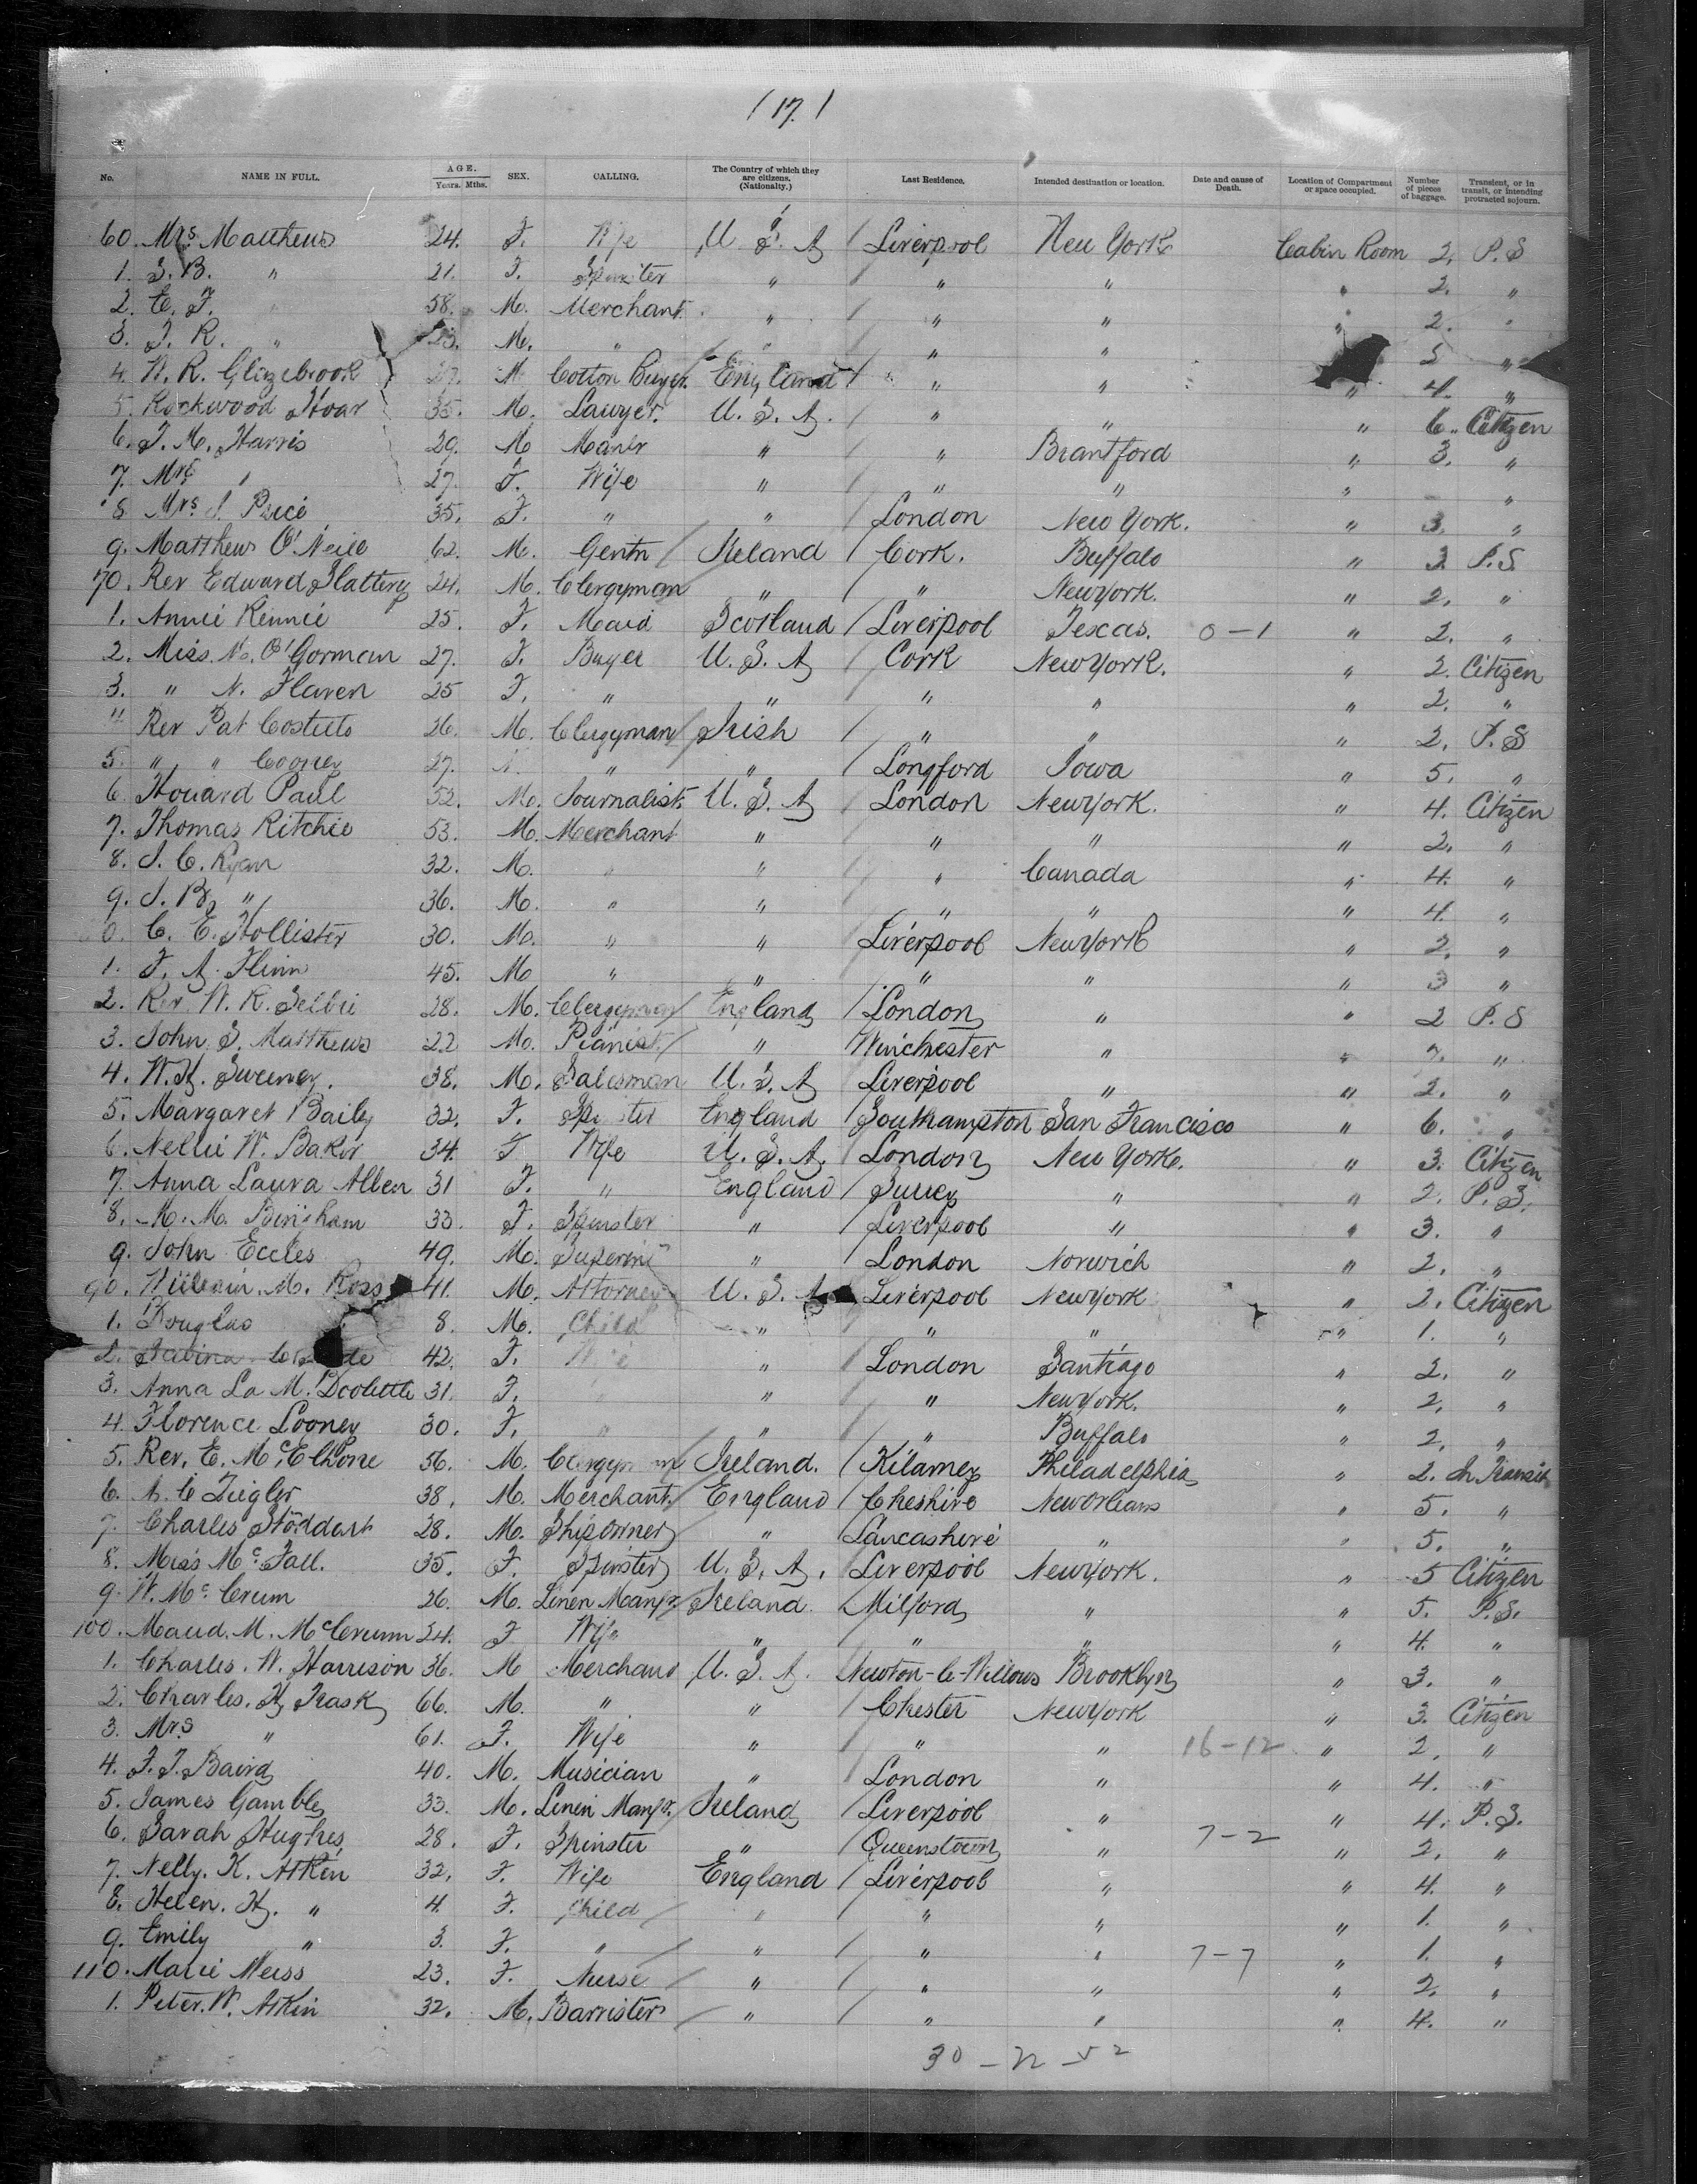 ( 17. )
No. NAME IN FULL. AGE. Years. Mths. SEX. CALLING. The Country of which they are citizens. (Nationalty.) Last Residence. Intended destination or location. Date and cause of Death. Location of Compartment or space occupied. Number of pieces of baggage. Transient, or in transit, or intending protracted sojourn.
60. Mrs. Matthews 24. F. Wife U. S. A / Liverpool New York Cabin Room 2. P. S
1. S. B. " 21. F. Spinster " / " " " 2. "
2. C. F. 58. M. Merchant " / " " " 2. "
3. J. R. " 23. M. " " / " " " 2 "
4. W. R. Glazebrook 27. M Cotton Buyer. England / " " " 4. "
5. Rockwood Hoar 35. M. Lawyer. U. S. A. " " " 6. Citizen
6. J. M. Harris 29. M U " / " Brantford " 3. "
7. Mrs " 27. F. Wife " / " " " "
8 Mrs. J. Price 35. F. " " / London New York. " 3. "
9. Matthew O'Neill 62. M. Gentn / Ireland / Cork. Buffalo " 3. P. S
70. Rev Edward Slattery 24. M. Clergyman " " New York. " 2. "
1. Annie Rennie 25. F. Maid Scotland / Liverpool Texas. 0-1 " 2. "
2. Miss. N. O'Gorman 27. F. Buyer U. S. A / Cork New York. " 2. Citizen
3. " N. Flaven 25 F. " " " " " 2. "
4 Rev Pat Costello 26. M. Clergyman / Irish / " " " 2. P. S
5. " " Cooney 27. " " / Longford Iowa " 5. "
6. Howard Paul 52. M. Journalist U. S. A / London New York. " 4. Citizen
7. Thomas Ritchie 53. M. Merchant " " " " 2. "
8. J. C. Ryan 32. M. " " / " Canada " 4. "
9. J. B. " 36. M. " " " " " 4. "
0. C. E. Hollister 30. M. " " / Liverpool New York " 2. "
1. F. A. Flinn 45. M " " " " " 3 "
2. Rev. W. R. Selbie 28. M. Clergyman / England / London " " 2 P. S
3. John S. Matthews 22 M. Pianist / " / Winchester " " 2. "
4. W. H. Sweeney. 38. M. Salesman U. S. A / Liverpool " " 2. "
5. Margaret Baily 32. F. Spinster England / Southampton San Francisco " 6. "
6. Nellie W. Baker 34. F Wife U. S. A. / London New York. " 3. Citizen
7. Anna Laura Allen 31 F. " England / Surrey " " 2. P. S.
8. M. M. Bingham 33. F. Spinster " / Liverpool " " 3. "
9. John Eccles 49. M. " / London Norwich " 2. "
90. William. M. Ross 41. M. Attorney U. S. A / Liverpool New York " 2. Citizen
1. Douglas 8. M. Child " / " " " 1. "
2. 42. F. Wife " / London Santiago " 2. "
3. Anna La M. 31. F. " " / " New York. " 2. "
4. Florence Looney 30. F. " " / " Buffalo " 2. "
5. Rev. E. McElhone 36. M. Clergyman / Ireland. / Kilarney Philadelphia " 2. In Transit
6. A. C Ziegler 38. M. Merchant / England / Cheshire New Orleans " 5. "
7. Charles Stoddart 28. M. Shipowner " Lancashire " " 5. "
8. Miss Mc. Fall. 35. F. Spinster U. S. A. / Liverpool New York. " 5 Citizen
9. W. Mc Crum 26. M. Linen Manfr / Ireland. / Milford " " 5. P. S.
100. Maud. M. McCrum 24. F Wife " " " " 4. "
1. Charles. W. Harrison 36. M Merchant U. S. A. Newton-le-Willows Brooklyn " 3. "
2. Charles. H. Trask 66. M. " " / Chester New York " 3. Citizen
3. Mrs " 61. F. Wife " / " " 16-12 " 2. "
4. F. T. Baird 40. M. Musician " / London " " 4. "
5. James Gamble 33. M. Linen Manfr. / Ireland / Liverpool " " 4. P. S.
6. Sarah Hughes 28. F. Spinster " / Queenstown " 7-2 " 2. "
7. Nelly. K. Atkin 32. F. Wife England / Liverpool " " 4. "
8. Helen. H. " 4. F. Child / " " " " 1. "
9. Emily " 3. F. " / " / " " 7-7 " 1. "
110. Marie Meiss 23. F. Nurse / " / " " " 2. "
1. Peter. W. Atkin 32. M. Barrister / " / " " " 4. "
30 - 22 - 52